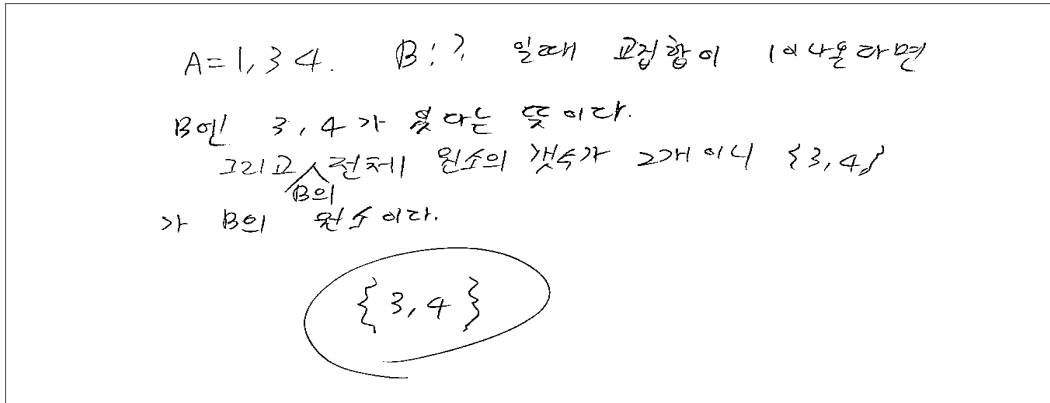 A=1,3 4. B:? 일때 교집합이 1이나온다면
B엔 3,4가 있다는 뜻이다.
그리고 B의 전체 원소의 갯수가 2개이니 {3,4}
가 B의 원소이다.
{3,4}